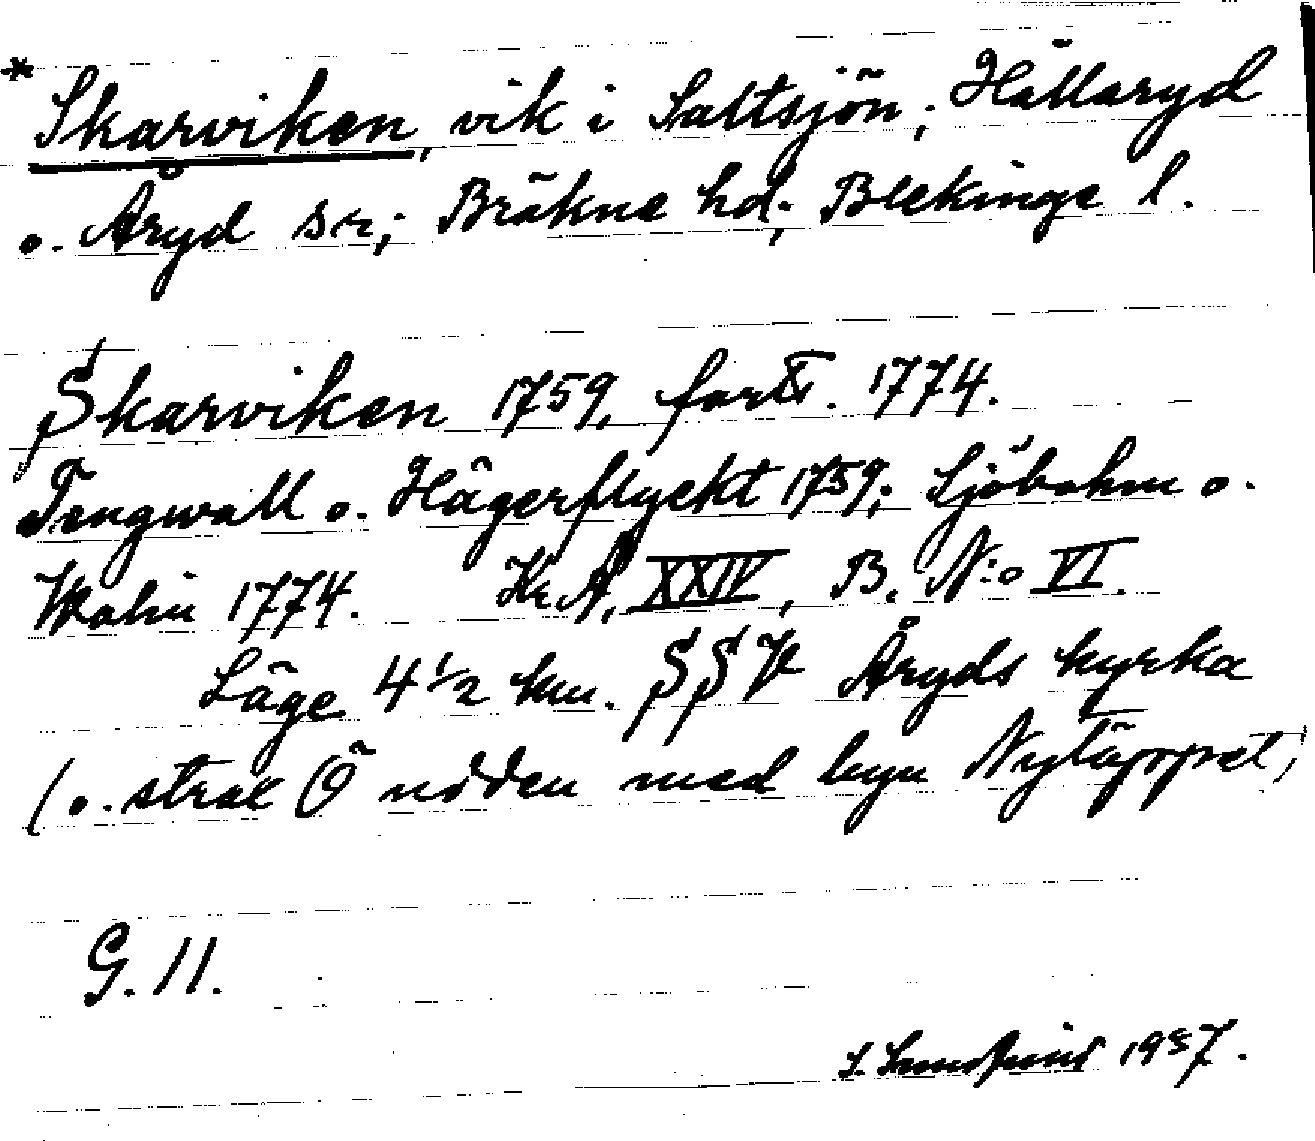 * Skarviken, vik i Saltsjön; Hällaryd
o. Åryd sr; Bräkne hd; Blekinge l.
Skarviken 1759, fort. 1774.
Tengwall o. Hägerflyckt 1759; Sjöbohm o.
Wahin 1774. Kr.A. XXIV, B. N:o VI.
Läge 4 1/2 km. SSV Åryds kyrka
(o. strax Ö udden med byn Nytäppet)
G. 11.
1937.